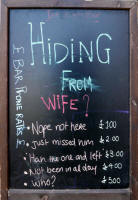 HIDING
FROM
WIFE?
£ BAR PHONE RATES £
• Nope not here £1.00
• Just missed him £2.00
• Han the one and left £3.00
• Not been in all day £4.00
• Who? £5.00